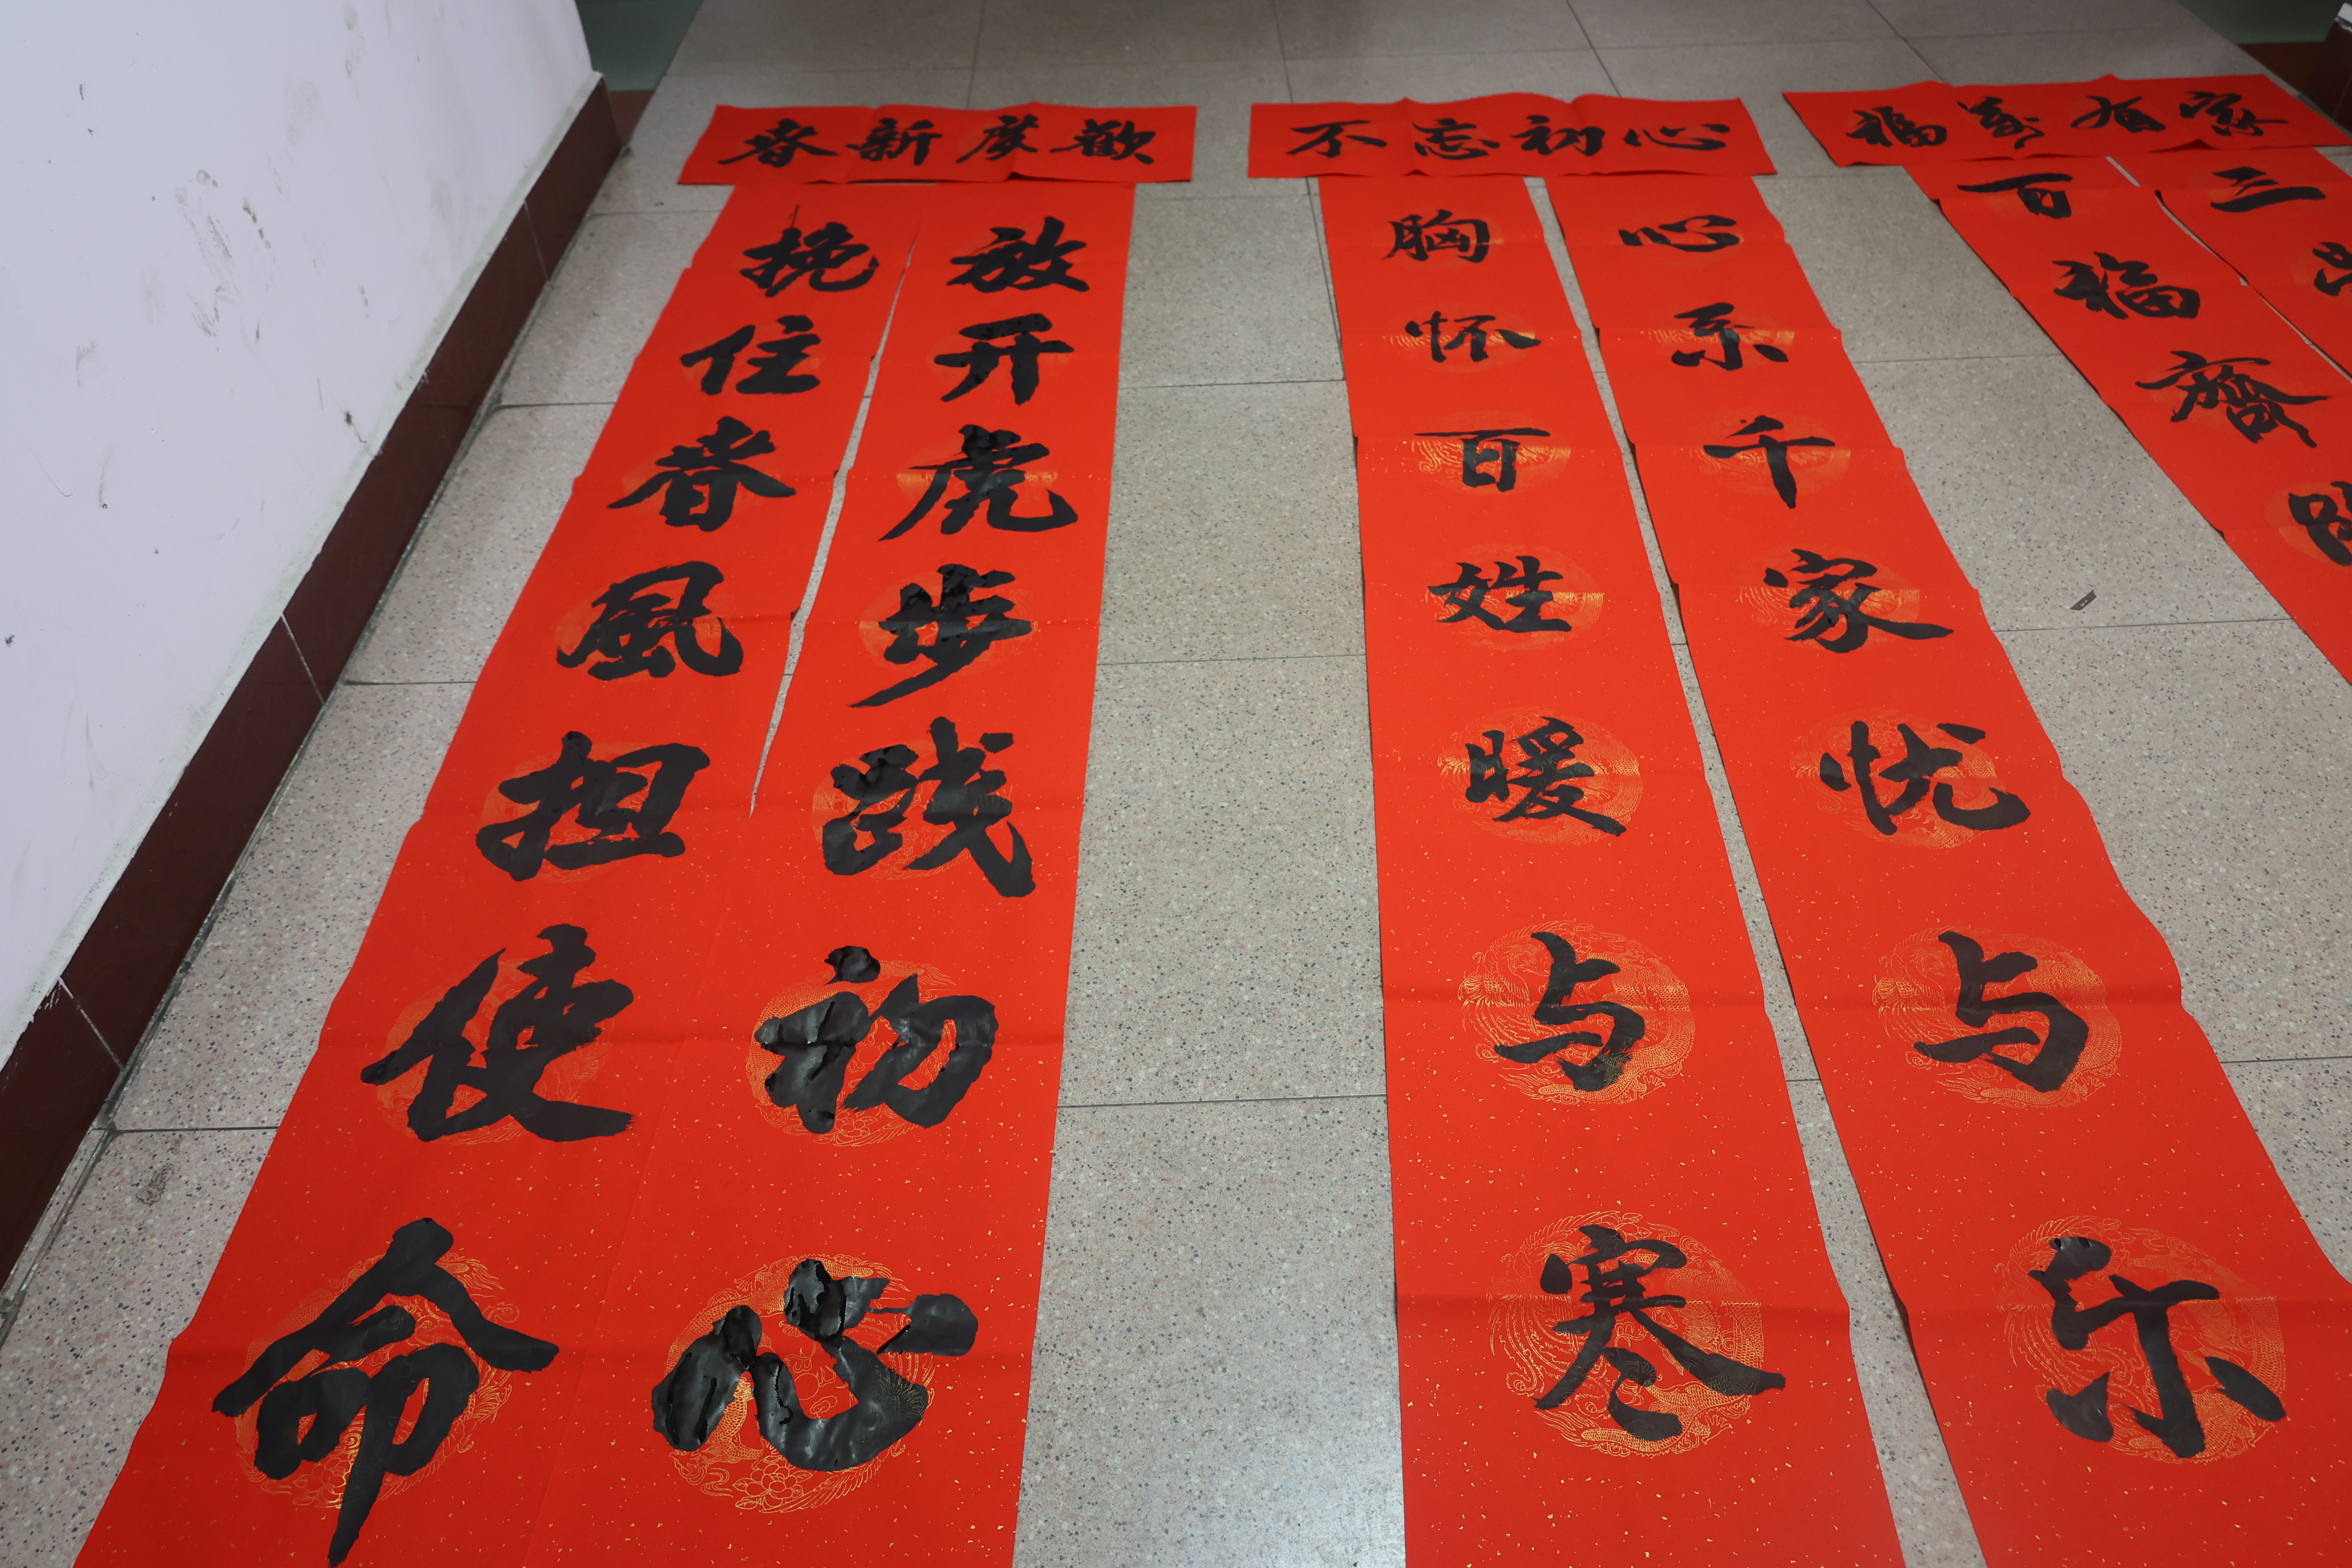 歡度新春
放开虎步践初心
挽住春風担使命
不忘初心
心系千家忧与乐
胸怀百姓暖与寒
家有萬福
三
百福齊